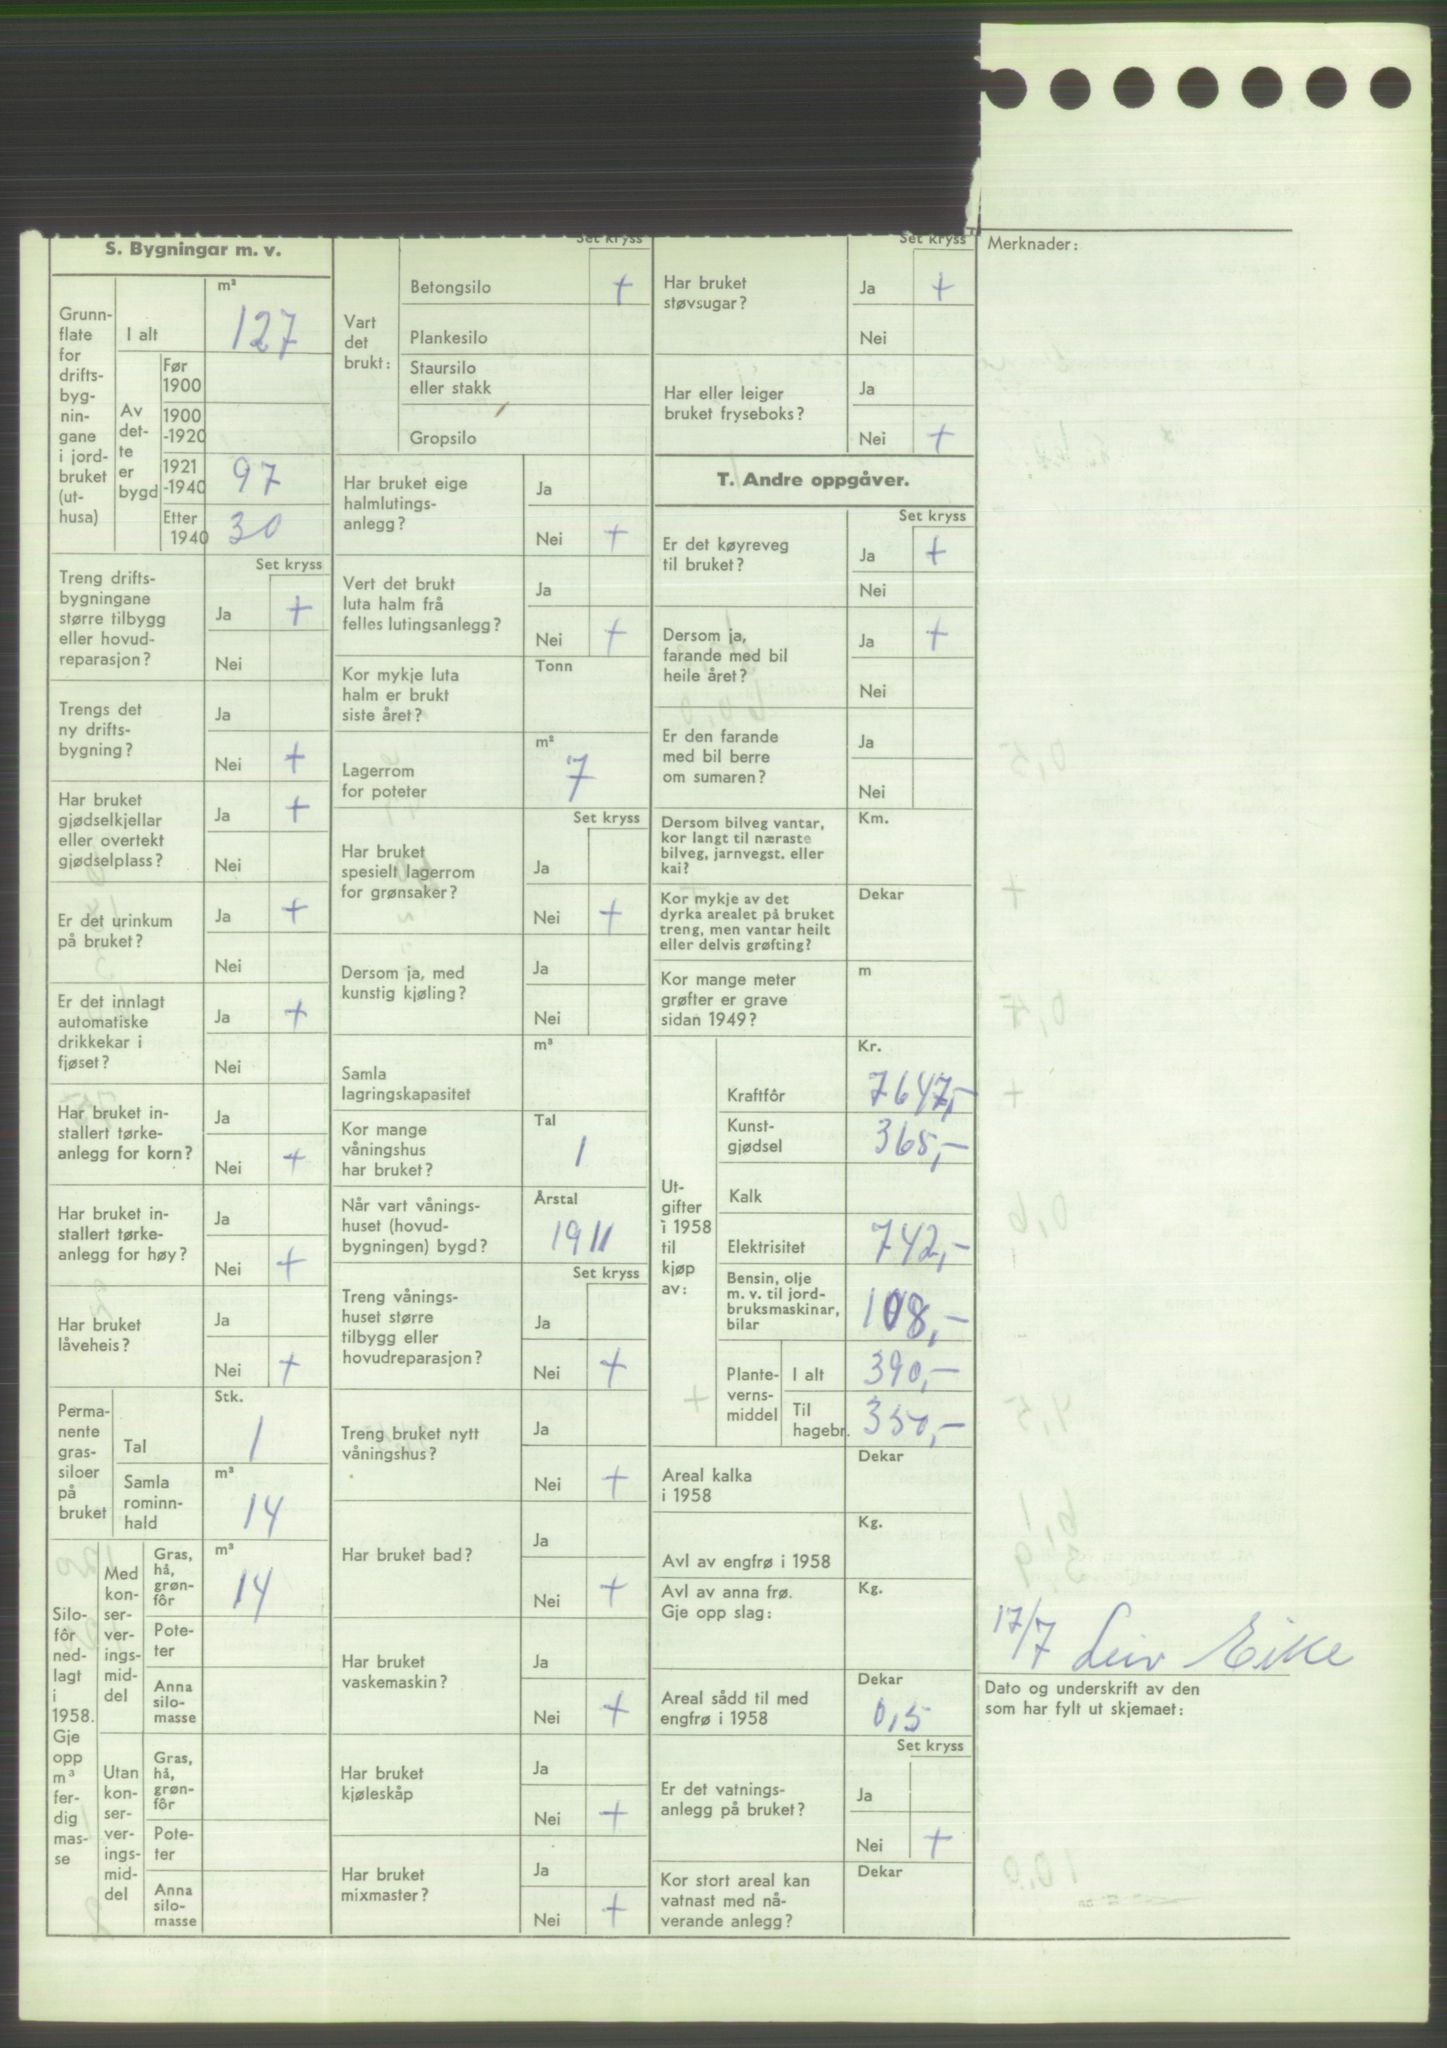 S. Bygningar m. v.
Grunn-
flate
for
drifts-
byg-
nin-
gane
i jord-
bruket
(ut-
husa)
I alt
m²
127
Av
det-
te
er
bygd
Før
1900
1900
-1920
1921
-1940
97
Etter
1940
30
Set kryss
Treng drifts-
bygningane
større tilbygg
eller hovud-
reparasjon?
Ja +
Nei
Trengs det
ny drifts-
bygning?
Ja
Nei +
Har bruket
gjødselkjellar
eller overtekt
gjødselplass?
Ja +
Nei
Er det urinkum
på bruket?
Ja +
Nei
Er det innlagt
automatiske
drikkekar i
fjøset?
Ja +
Nei
Har bruket in-
stallert tørke-
anlegg for korn?
Ja
Nei +
Har bruket in-
stallert tørke-
anlegg for høy?
Ja
Nei +
Har bruket
låveheis?
Ja
Nei +
Perma-
nente
gras-
siloer
på
bruket
Tal
Stk.
1
Samla
rominn-
hald
m³
14
Silo-
fôr
ned-
lagt
i
1958.
Gje
opp
m³
fer-
dig
mas-
se
Med
kon-
ser-
ver-
ings-
mid-
del
Gras,
hå,
grøn-
fôr
m³
14
Pote-
ter
Anna
silo-
masse
Utan
kon-
ser-
ver-
ings-
mid-
del
Gras,
hå,
grøn-
fôr
Pote-
ter
Anna
silo-
masse
Set kryss
Vart
det
brukt:
Betongsilo +
Plankesilo
Staursilo
eller stakk
Gropsilo
Har bruket eige
halmlutings-
anlegg?
Ja
Nei +
Vert det brukt
luta halm frå
felles lutingsanlegg?
Ja
Nei +
Kor mykje luta
halm er brukt
siste året?
Tonn
Lagerrom
for poteter
m²
7
Set kryss
Har bruket
spesielt lagerrom
for grønsaker?
Ja
Nei +
Dersom ja, med
kunstig kjøling?
Ja
Nei
Samla
lagringskapasitet
m³
Kor mange
våningshus
har bruket?
Tal
1
Når vart vånings-
huset (hovud-
bygningen) bygd?
Årstal
1911
Set kryss
Treng vånings-
huset større
tilbygg eller
hovudreparasjon?
Ja
Nei +
Treng bruket nytt
våningshus?
Ja
Nei +
Har bruket bad?
Ja
Nei +
Har bruket
vaskemaskin?
Ja
Nei +
Har bruket
kjøleskåp
Ja
Nei +
Har bruket
mixmaster?
Ja
Nei +
Set kryss
Har bruket
støvsugar?
Ja +
Nei
Har eller leiger
bruket fryseboks?
Ja
Nei +
T. Andre oppgåver.
Set kryss
Er det køyreveg
til bruket?
Ja +
Nei
Dersom ja,
farande med bil
heile året?
Ja +
Nei
Er den farande
med bil berre
om sumaren?
Ja
Nei
Dersom bilveg vantar,
kor langt til næraste
bilveg, jarnvegst. eller
kai?
Km.
Kor mykje av det
dyrka arealet på bruket
treng, men vantar heilt
eller delvis grøfting?
Dekar
Kor mange meter
grøfter er grave
sidan 1949?
m
Ut-
gifter
i 1958
til
kjøp
av:
Kr.
Kraftfôr 7647,-
Kunst-
gjødsel 365,-
Kalk
Elektrisitet 742,-
Bensin, olje
m. v. til jord-
bruksmaskinar,
bilar
108,-
Plante-
verns-
middel
I alt 390,-
Til
hagebr. 350,-
Areal kalka
i 1958
Dekar
Avl av engfrø i 1958
Kg.
Avl av anna frø.
Gje opp slag:
Kg.
Areal sådd til med
engfrø i 1958
Dekar
0,5
Set kryss
Er det vatnings-
anlegg på bruket?
Ja
Nei +
Kor stort areal kan
vatnast med nå-
verande anlegg?
Dekar
Merknader:
17/7 Leiv Eike
Dato og underskrift av den
som har fylt ut skjemaet: